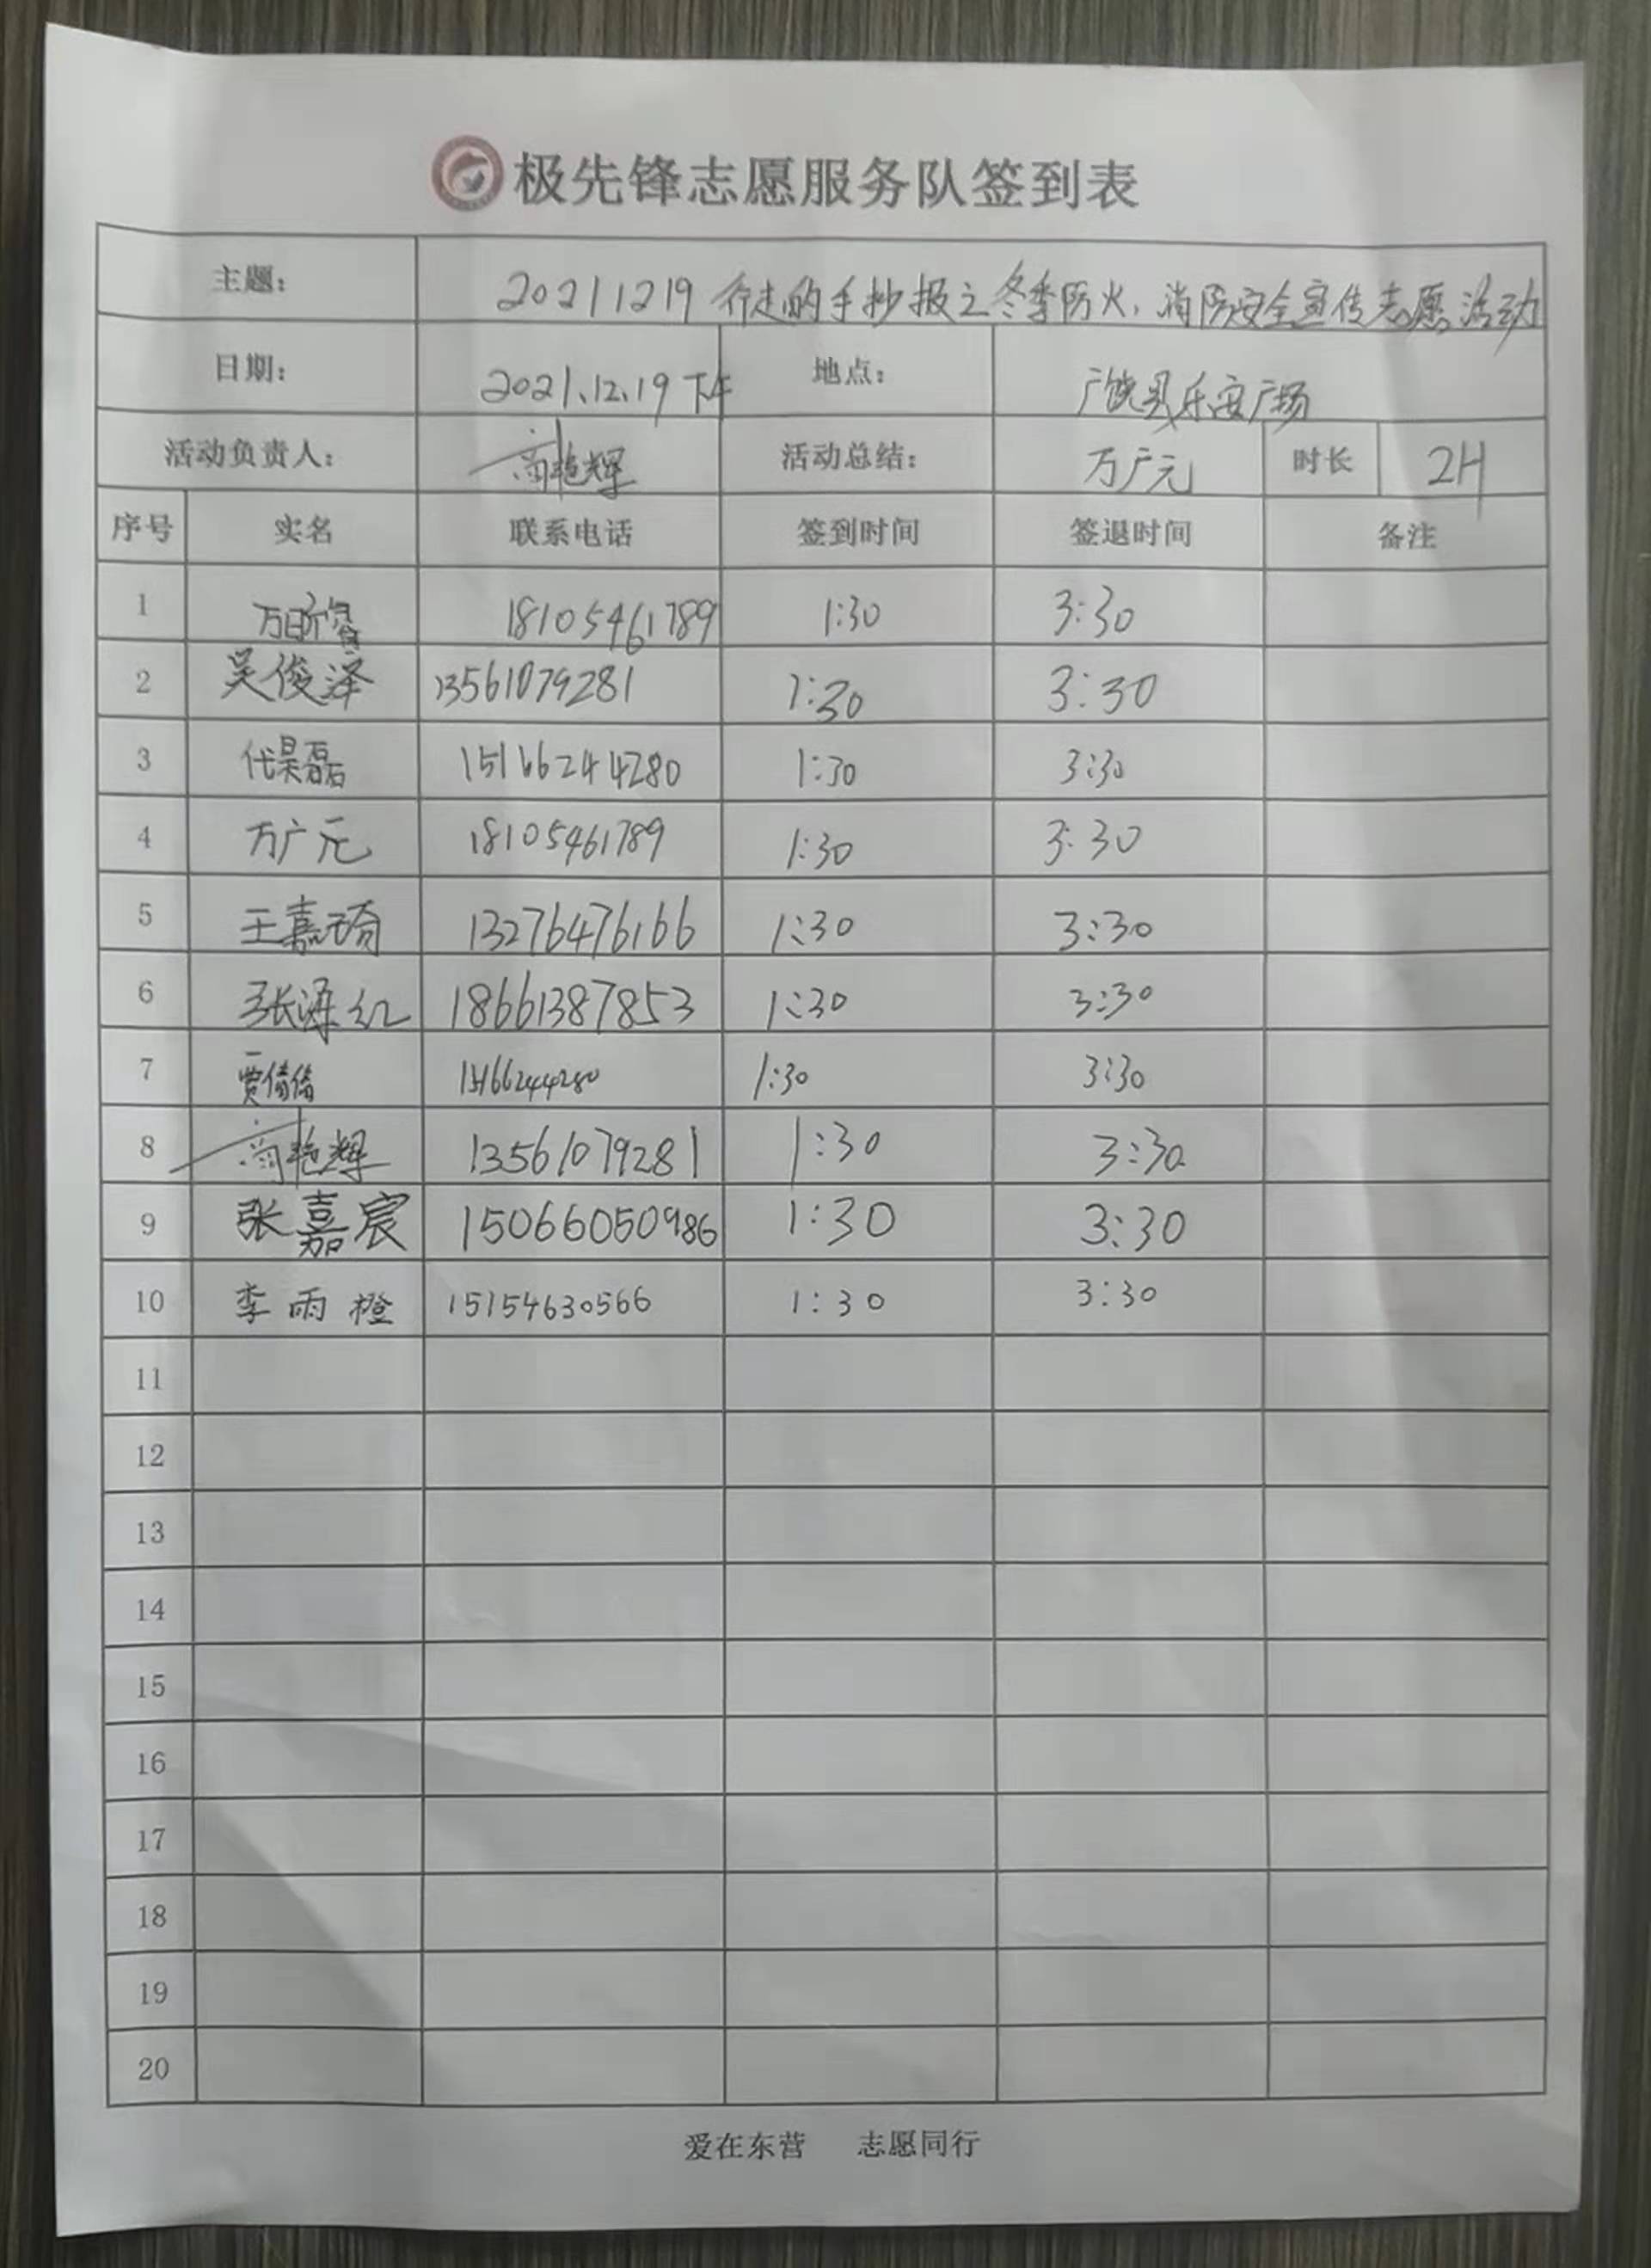 极先锋志愿服务队签到表
主题: 20211219 行走的手抄报之冬季防火、消防安全宣传志愿活动
日期: 2021.12.19 下午 地点: 广饶县乐安广场
活动负责人: 艳辉 活动总结: 万广元 时长 2H
序号 实名 联系电话 签到时间 签退时间 备注
1 万 18105461789 1:30 3:30
2 吴俊泽 13561079281 1:30 3:30
3 代昊磊 15166244280 1:30 3:30
4 万广元 18105461789 1:30 3:30
5 王嘉琦 13276476166 1:30 3:30
6 张海红 18661387853 1:30 3:30
7 贾倩倩 15166244280 1:30 3:30
8 艳辉 13561079281 1:30 3:30
9 张嘉宸 15066050986 1:30 3:30
10 李雨橙 15154630566 1:30 3:30
11
12
13
14
15
16
17
18
19
20
爱在东营 志愿同行